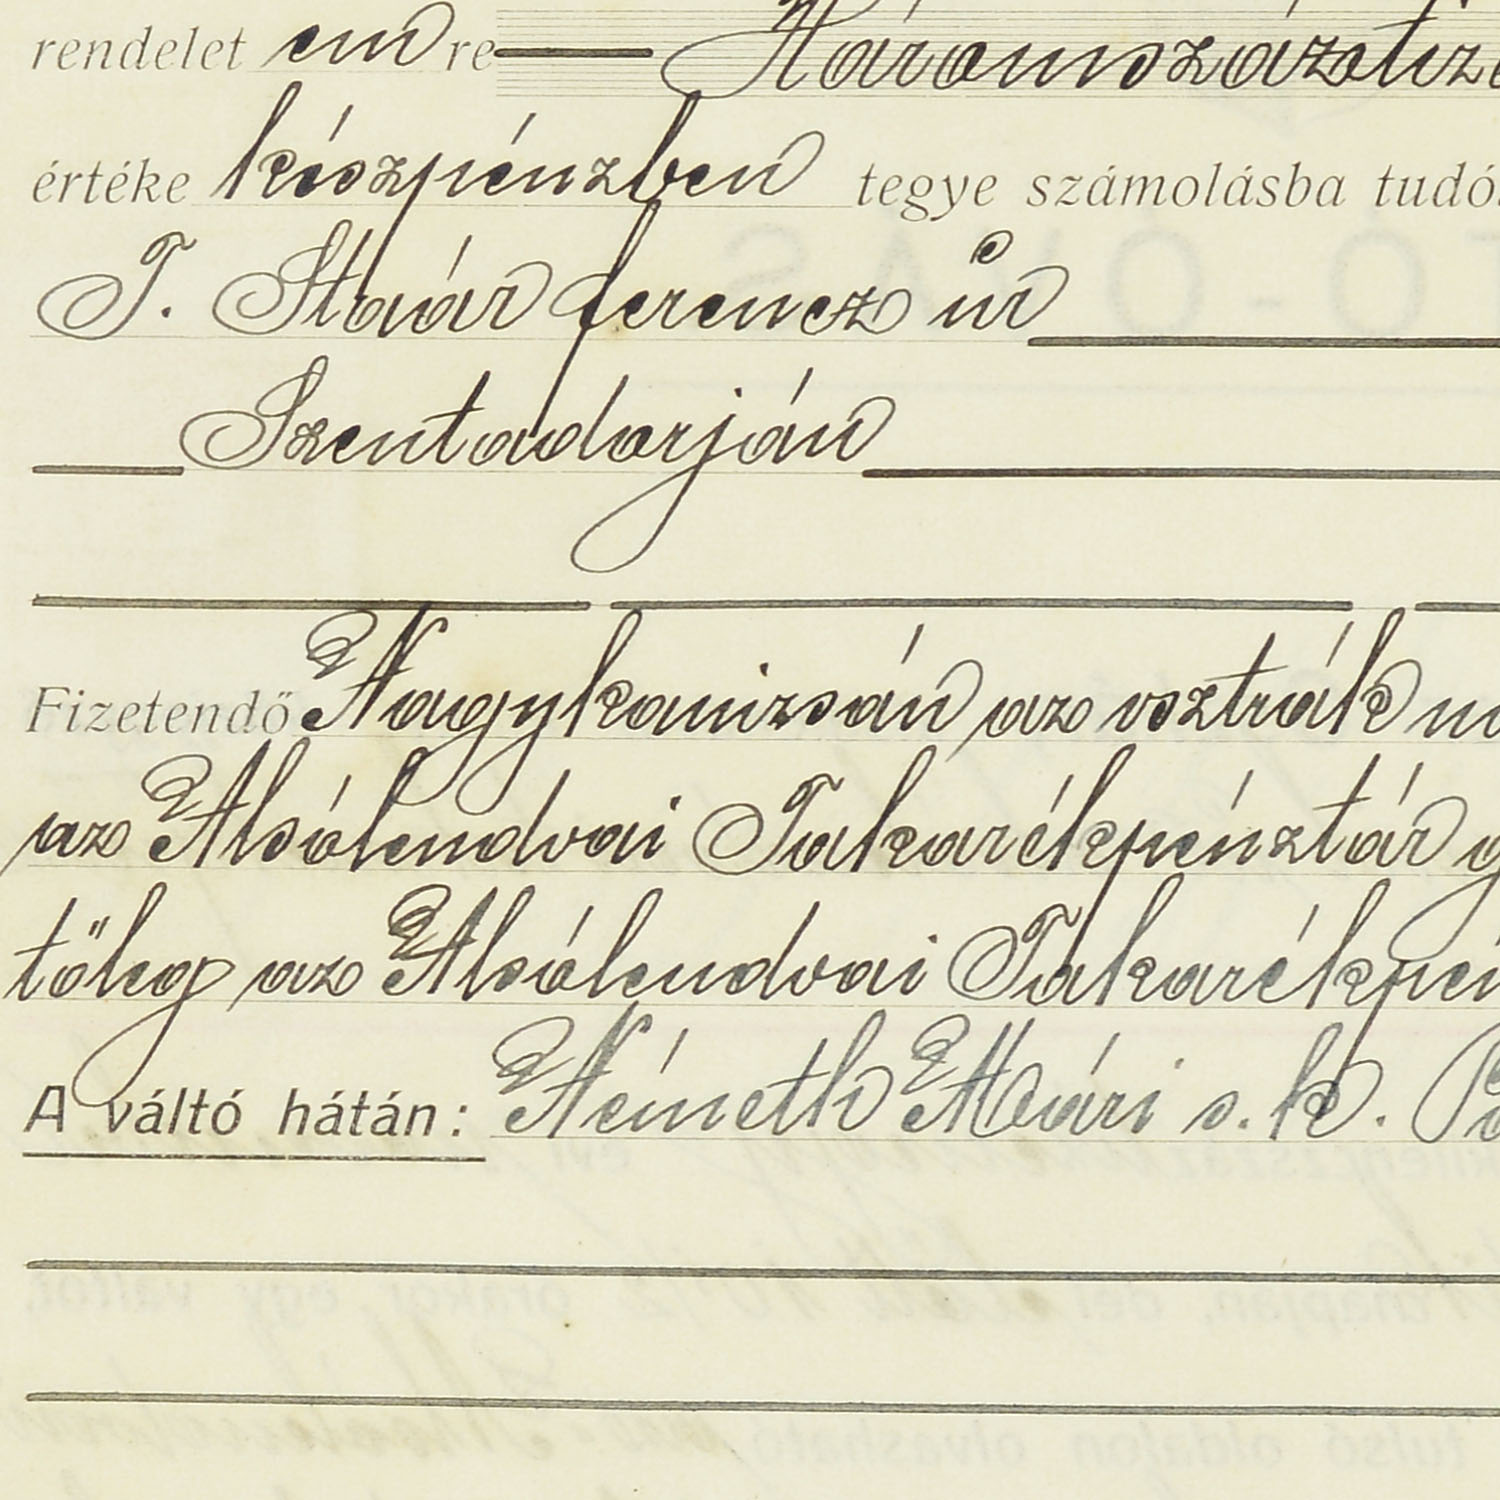 rendelet em re Háromszáztize
értéke készpénzben tegye számolásba tudó
T. Staár ferencz úr
Szentadorján
Fizetendő Nagykanizsán az osztrák
az Alsólendvai Takarékpénztár
tőleg az Alsólendvai Takarékpén
A váltó hátán: Németh Mári s. k.